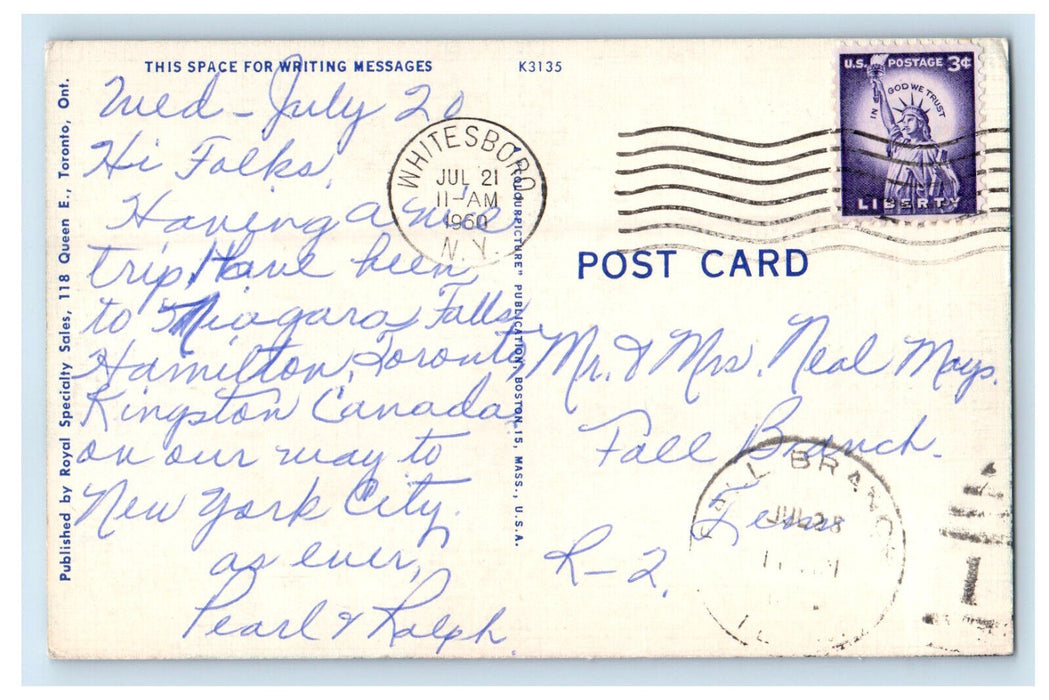 THIS SPACE FOR WRITING MESSAGES
K3135
Wed - July 20
Hi Folks,
Having a nice
trip. Have been
to Niagara Falls
Hamilton, Toronto
Kingston Canada
on our way to
New York City.
as ever,
Pearl & Ralph.
Published by Royal Specialty Sales, 118 Queen E., Toronto, Ont.
"COLOURPICTURE" PUBLICATION, BOSTON 15, MASS., U.S.A.
WHITESBORO
JUL 21
11-AM
1960
N.Y.
U.S. POSTAGE 3¢
IN GOD WE TRUST
LIBERTY
POST CARD
Mr. & Mrs. Neal Mays.
Fall Branch.
Tenn
R-2.
FALL BRANCH
JUL 23